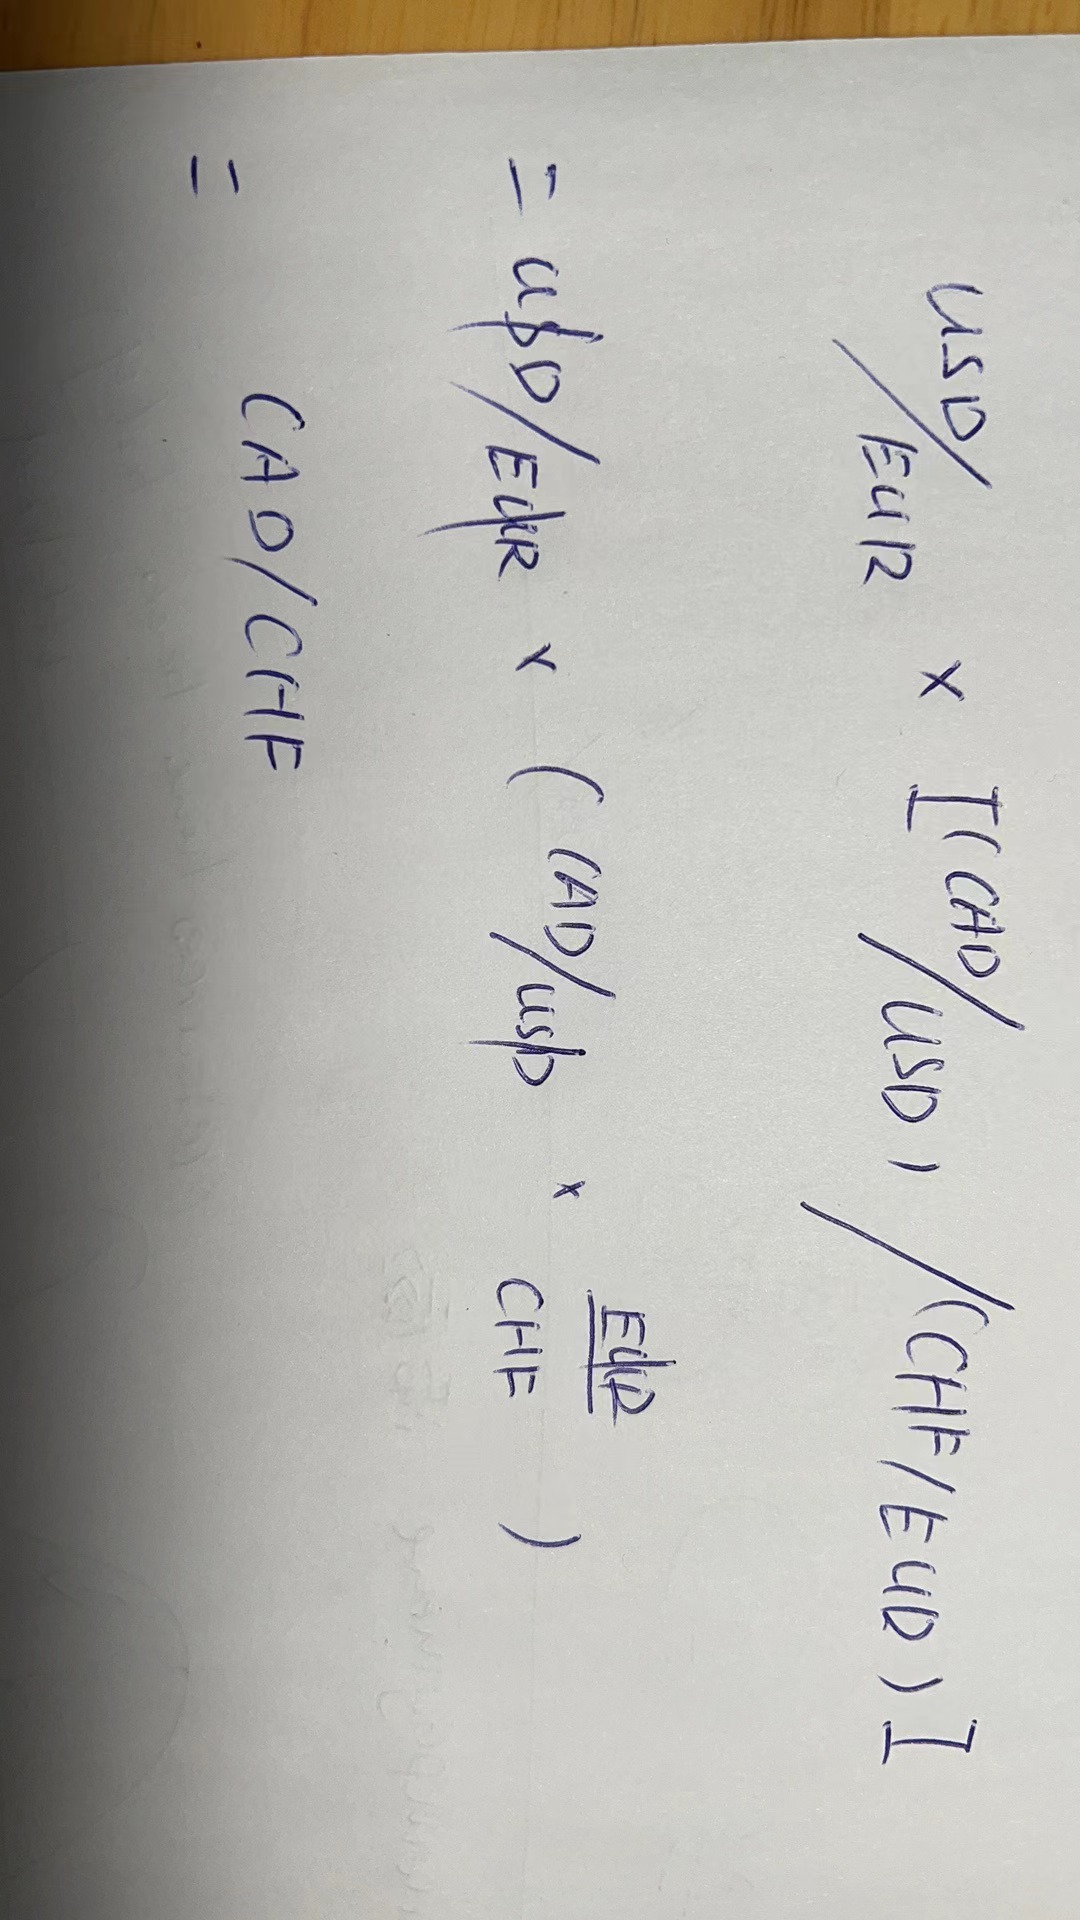 USD/EUR × [(CAD/USD) / (CHF/EUD)]
= USD/EUR × (CAD/USD × EUR/CHF)
= CAD/CHF